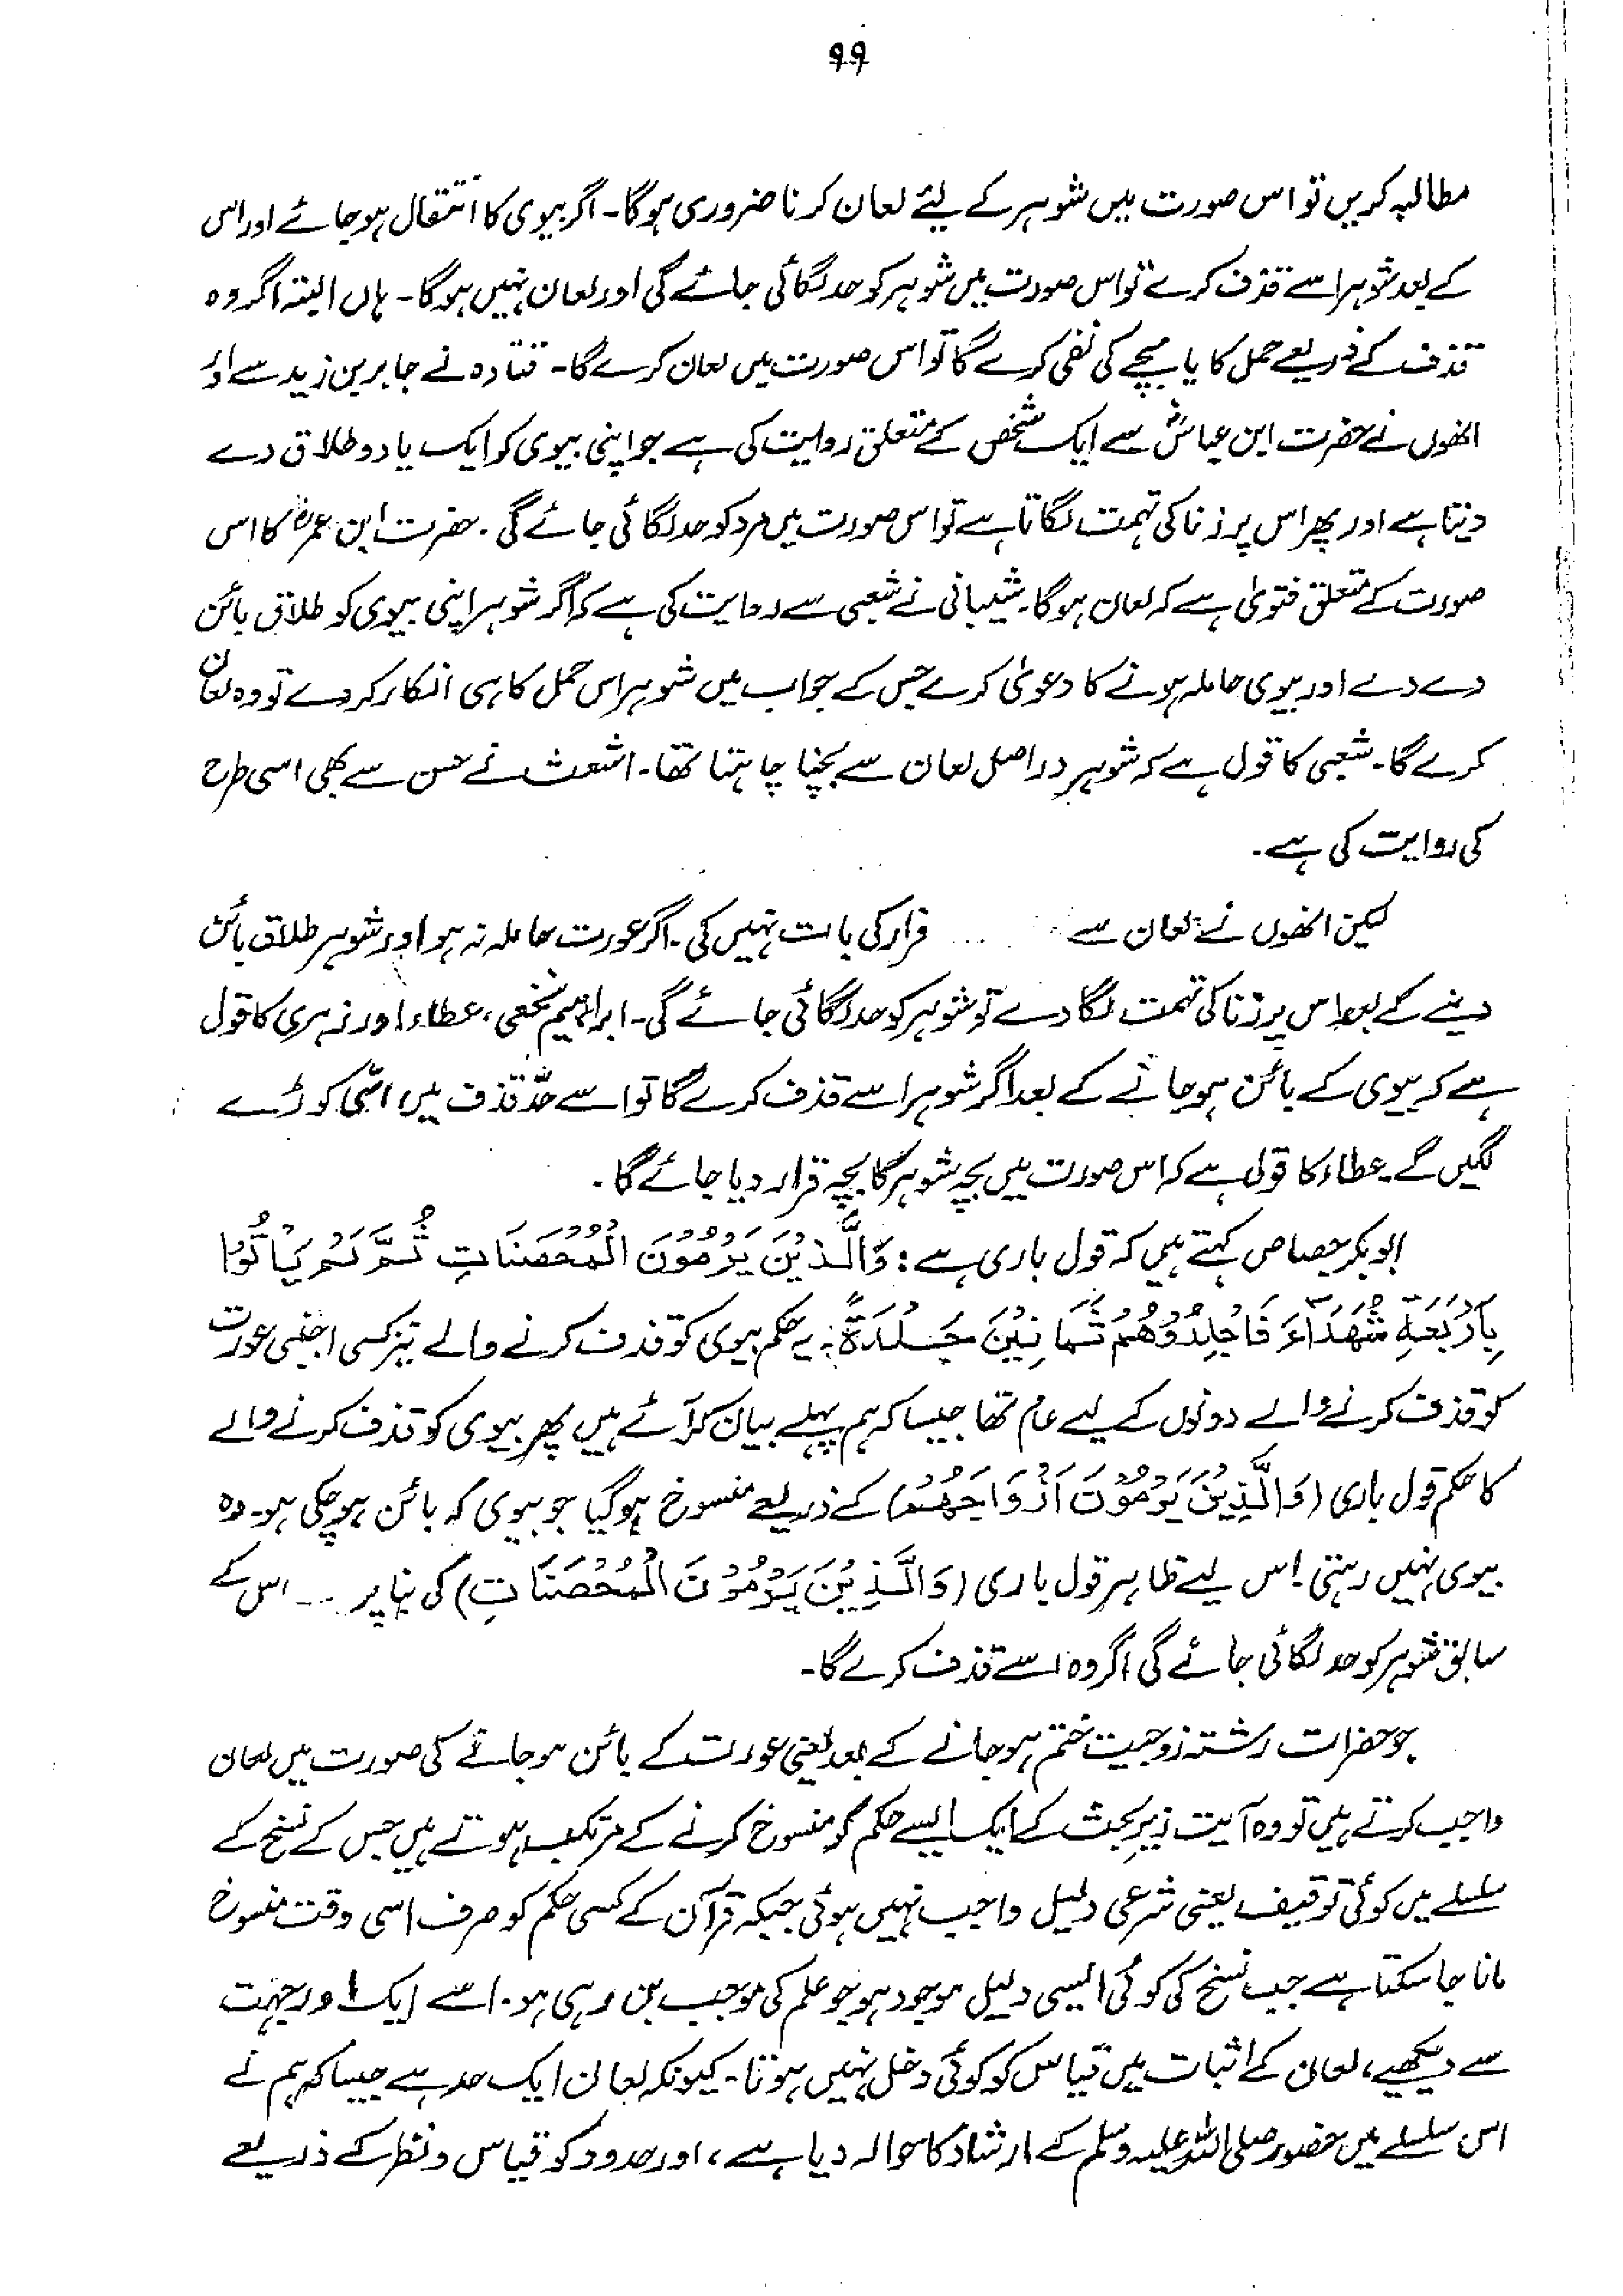 ۹۹
مطالبہ کریں تو اس صورت میں شوہر کے لیئے لعان کرنا ضروری ہوگا۔ اگر بیوی کا انتقال ہوجائے اور اس
کے بعد شوہر اسے قذف کرے تو اس صورت میں شوہر کو حد لگائی جائے گی اور لعان نہیں ہوگا۔ ہاں البتہ اگر وہ
قذف کے ذریعے حمل کا یا بچے کی نفی کرے گا تو اس صورت میں لعان کرے گا۔ قتادہ نے جابر بن زید سے اور
انھوں نے حضرت ابن عباسؓ سے ایک شخص کے متعلق روایت کی ہے جو اپنی بیوی کو ایک یا دو طلاق دے
دیتا ہے اور پھر اس پر زنا کی تہمت لگاتا ہے تو اس صورت میں مرد کو حد لگائی جائے گی۔ حضرت ابن عمرؓ کا اس
صورت کے متعلق فتویٰ ہے کہ لعان ہوگا۔ شیبانی نے شعبی سے روایت کی ہے کہ اگر شوہر اپنی بیوی کو طلاق بائن
دے دے اور بیوی حاملہ ہونے کا دعویٰ کرے جس کے جواب میں شوہر اس حمل کا ہی انکار کر دے تو وہ لعان
کرے گا۔ شعبی کا قول ہے کہ شوہر دراصل لعان سے بچنا چاہتا تھا۔ اشعث نے حسن سے بھی اسی طرح
کی روایت کی ہے۔
لیکن انھوں نے لعان سے .... فرار کی بات نہیں کی۔ اگر عورت حاملہ نہ ہو اور شوہر طلاق بائن
دینے کے بعد اس پر زنا کی تہمت لگا دے تو شوہر کو حد لگائی جائے گی۔ ابراہیم نخعی، عطاء اور زہری کا قول
ہے کہ بیوی کے بائن ہوجانے کے بعد اگر شوہر اسے قذف کرے گا تو اسے حدِّ قذف میں اسّی کوڑے
لگیں گے۔ عطاء کا قول ہے کہ اس صورت میں بچہ شوہر کا بچہ قرار دیا جائے گا۔
ابوبکر جصاص کہتے ہیں کہ قول باری ہے: وَالَّذِیْنَ یَرْمُوْنَ الْمُحْصَنَاتِ ثُمَّ لَمْ یَاْتُوْا
بِاَرْبَعَةِ شُهَدَآءَ فَاجْلِدُوْهُمْ ثَمَانِیْنَ جَلْدَةً۔ یہ حکم بیوی کو قذف کرنے والے نیز کسی اجنبی عورت
کو قذف کرنے والے دونوں کے لیے عام تھا جیسا کہ ہم پہلے بیان کر آئے ہیں پھر بیوی کو قذف کرنے والے
کا حکم قول باری (وَالَّذِیْنَ یَرْمُوْنَ اَزْوَاجَهُمْ) کے ذریعے منسوخ ہوگیا جو بیوی کہ بائن ہوچکی ہو۔ وہ
بیوی نہیں رہتی۔ اس لیے ظاہر قول باری (وَالَّذِیْنَ یَرْمُوْنَ الْمُحْصَنَاتِ) کی بنا پر ... اس کے
سابق شوہر کو حد لگائی جائے گی اگر وہ اسے قذف کرے گا۔
جو حضرات رشتہ زوجیت ختم ہوجانے کے بعد یعنی عورت کے بائن ہوجانے کی صورت میں لعان
واجب کرتے ہیں تو وہ آیت زیرِ بحث کے ایک ایسے حکم کو منسوخ کرنے کے مرتکب ہوتے ہیں جس کے نسخ کے
سلسلے میں کوئی توقیف یعنی شرعی دلیل واجب نہیں ہوئی جبکہ قرآن کے کسی حکم کو صرف اسی وقت منسوخ
مانا جاسکتا ہے جب نسخ کی کوئی ایسی دلیل موجود ہو جو علم کی موجب بن رہی ہو۔ اسے ایک اور جہت
سے دیکھیے، لعان کے اثبات میں قیاس کو کوئی دخل نہیں ہوتا۔ کیونکہ لعان ایک حد ہے جیسا کہ ہم نے
اس سلسلے میں حضور صلی اللہ علیہ وسلم کے ارشاد کا حوالہ دیا ہے، اور حدود کو قیاس و نظر کے ذریعے